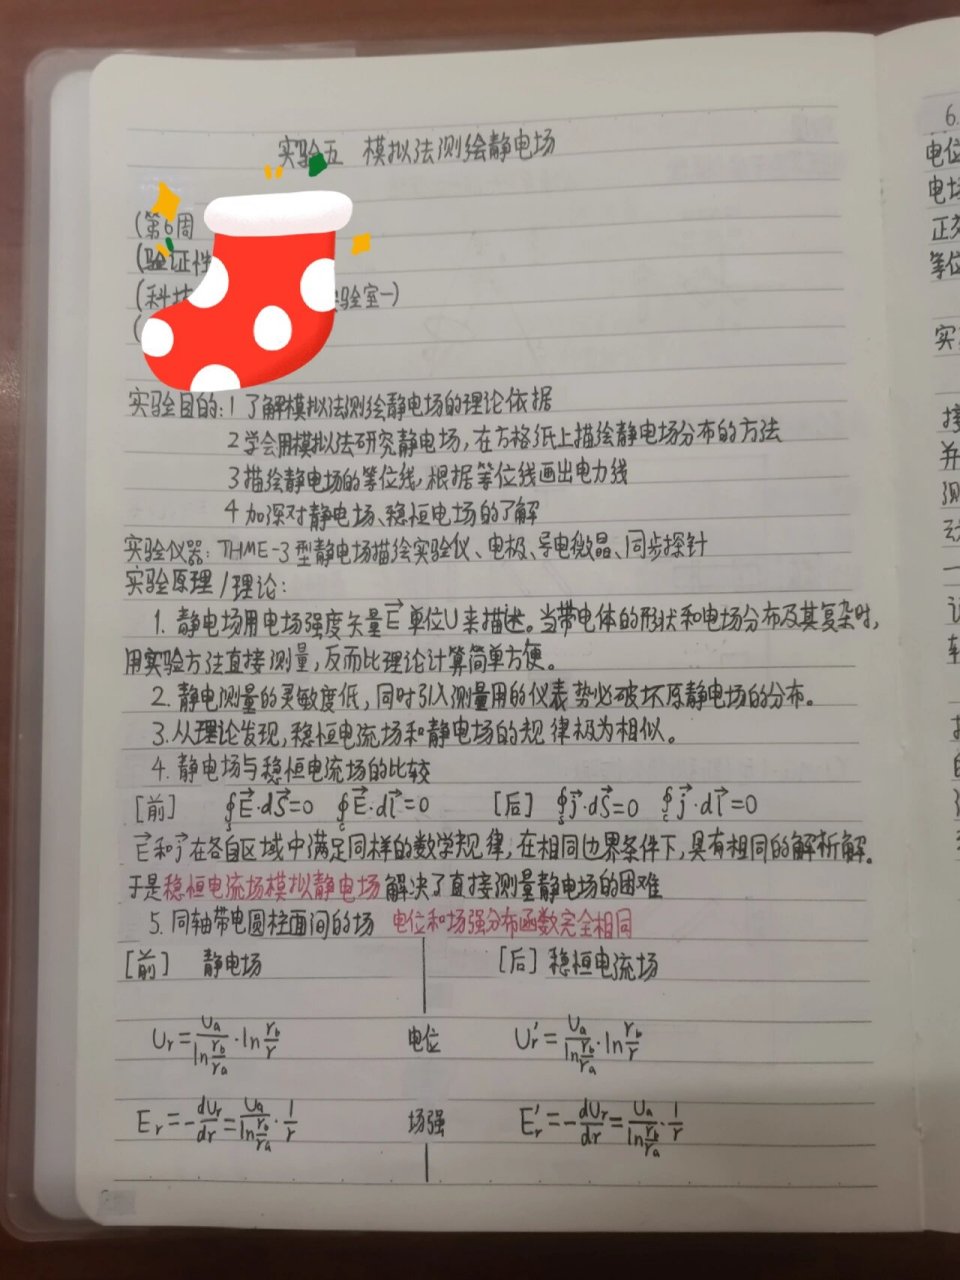 实验五 模拟法测绘静电场
(第6周
(验证性
(科技 实验室一)
(
实验目的:1 了解模拟法测绘静电场的理论依据
2 学会用模拟法研究静电场,在方格纸上描绘静电场分布的方法
3 描绘静电场的等位线,根据等位线画出电力线
4 加深对静电场、稳恒电场的了解
实验仪器:THME-3型静电场描绘实验仪、电极、导电微晶、同步探针
实验原理/理论:
1. 静电场用电场强度矢量E⃗ 单位U来描述。当带电体的形状和电场分布及其复杂时,
用实验方法直接测量,反而比理论计算简单方便。
2. 静电测量的灵敏度低,同时引入测量用的仪表势必破坏原静电场的分布。
3. 从理论发现,稳恒电流场和静电场的规律极为相似。
4. 静电场与稳恒电流场的比较
[前] ∮ₛE⃗·dS⃗=0 ∮_cE⃗·dl⃗=0 [后] ∮ₛj⃗·dS⃗=0 ∮_cj⃗·dl⃗=0
E⃗和j⃗在各自区域中满足同样的数学规律,在相同边界条件下,具有相同的解析解。
于是稳恒电流场模拟静电场解决了直接测量静电场的困难
5. 同轴带电圆柱面间的场 电位和场强分布函数完全相同
[前] 静电场 [后] 稳恒电流场
U_r=U_a/ln(r_b/r_a)·ln(r_b/r) 电位 U_r'=U_a/ln(r_b/r_a)·ln(r_b/r)
E_r=-dU_r/dr=U_a/ln(r_b/r_a)·1/r 场强 E_r'=-dU_r/dr=U_a/ln(r_b/r_a)·1/r
6.
电位
电场
正交
等位
实